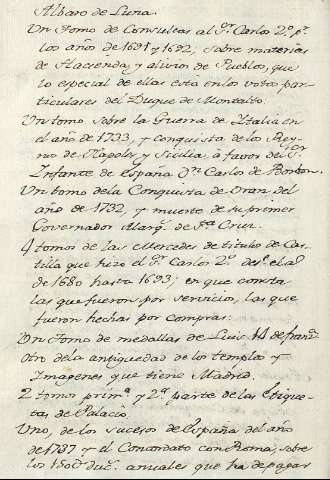 Albaro de Luna.
Un tomo de Consultas al Sr. Carlos 2º. pr.
los años de 1691 y 1692, sobre materias
de Hacienda, y alivio de Pueblos, que
lo especial de ellas està en los votos par-
ticulares del Duque de Montalto.
Un tomo sobre la Guerra de Italia en
el año de 1733, y conquista de los Rey-
nos de Napoles y Sicilia, à favor del Sr.
Infante de España Dn. Carlos de Borbon.
Un tomo de la Conquista de Oran del
año de 1732, y muerte de su primer
Governador Marqs. de Sta. Cruz.
4 tomos de las Mercedes de titulo de Cas-
tilla que hizo el Sr. Carlos 2º. desde el aº.
de 1680 hasta 1693; en que consta
las que fueron por servicios, las que
fueron hechas por compras.
Un tomo de medallas de Luis 14 de Francª.
Otro de la antiguedad de los templos y
Imagenes que tiene Madrid.
2 tomos primª. y 2ª. parte de las Etique-
tas de Palacio.
Uno, de los sucesos de España del año
de 1737 y el Concordato con Roma, sobre
los ducs. anuales que ha de pagar